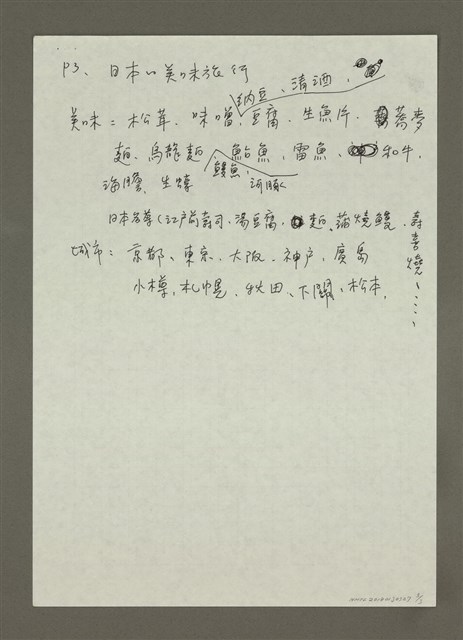 P3、日本的美味旅行
納豆、清酒、
美味：松茸、味噌、豆腐、生魚片、蕎麥
麵、烏龍麵、鮎魚、雷魚、和牛
鰻魚、河豚
海膽、生蠔
日本名等（江戶前壽司、湯豆腐、麵、蒲燒鰻、壽喜燒……）
城市：京都、東京、大阪、神戶、廣島
小樽、札幌、秋田、下關、松本、